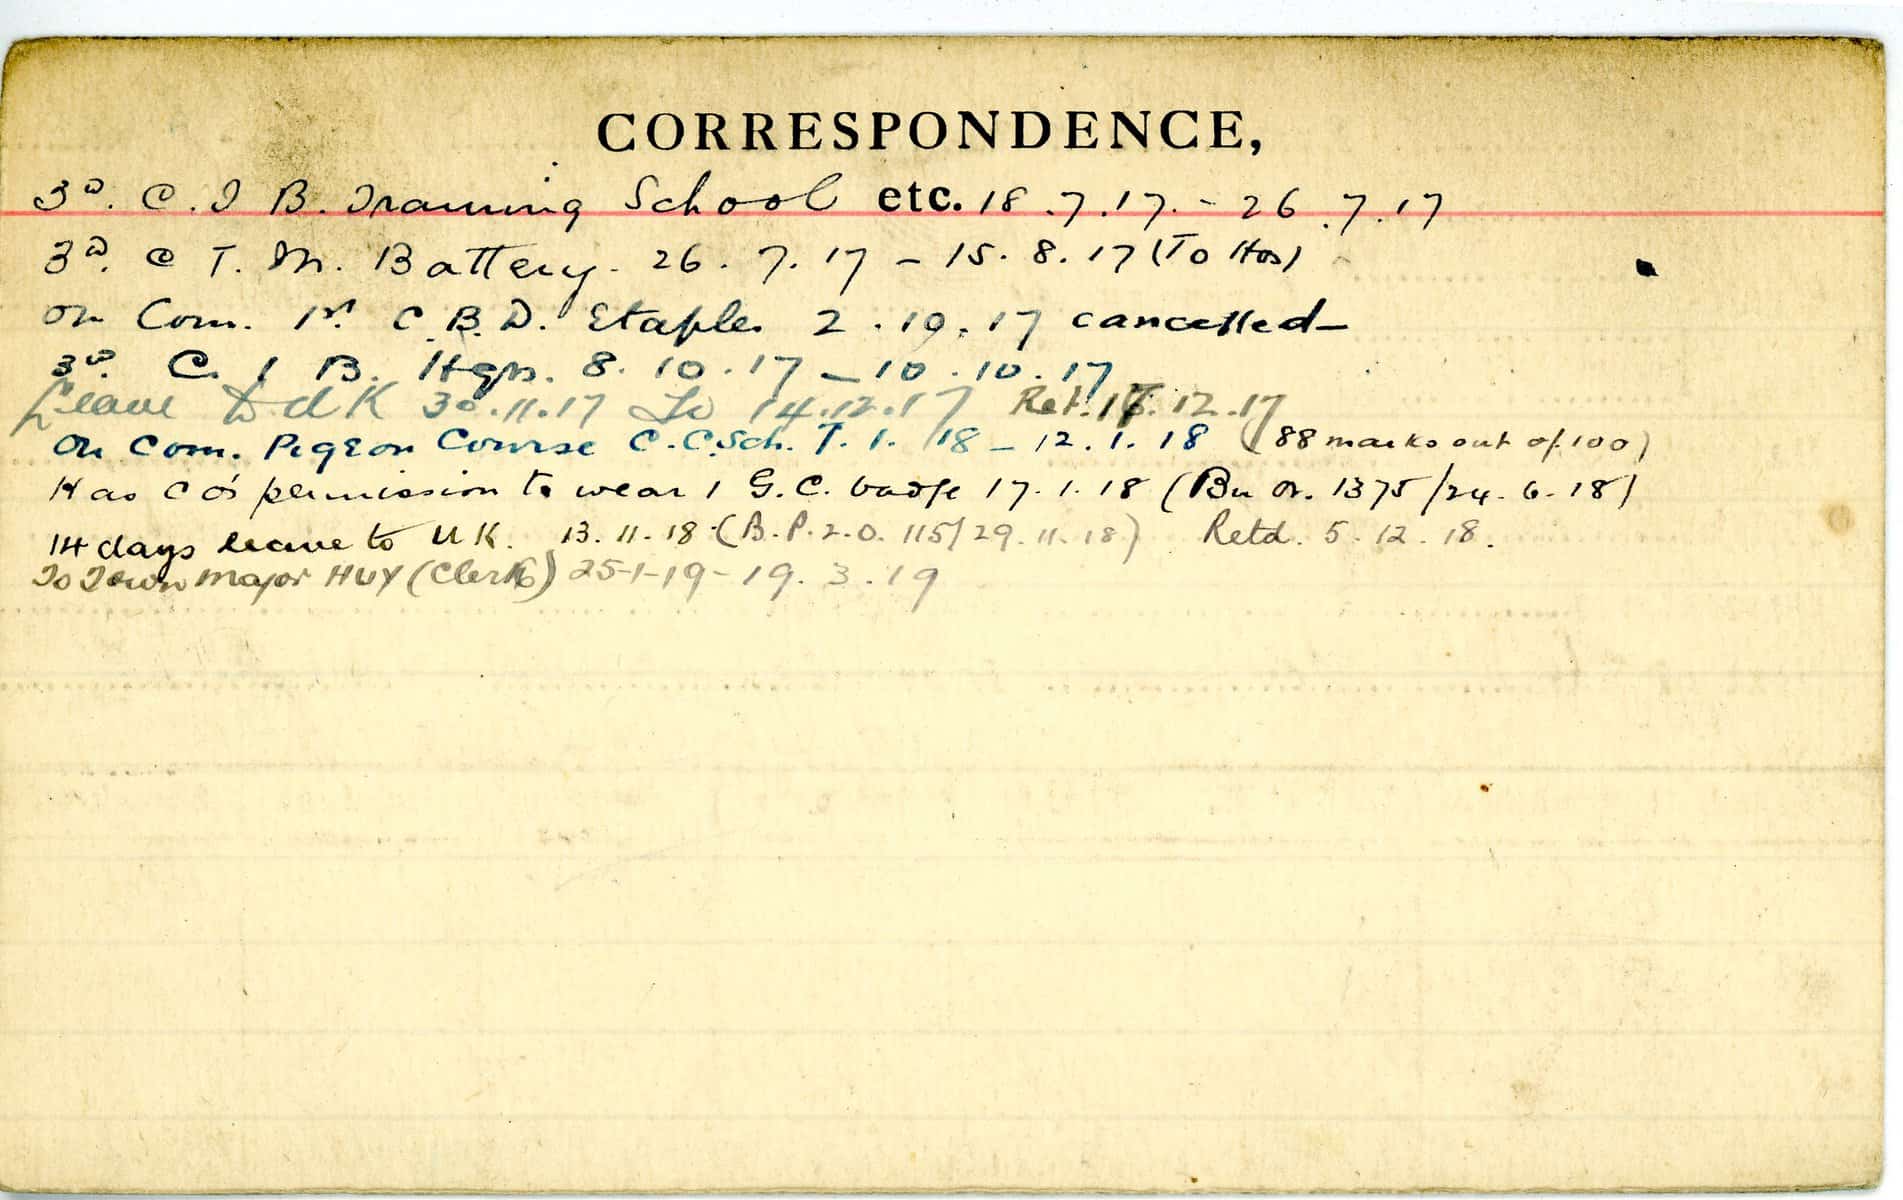 CORRESPONDENCE,
3rd. C. I B. Training School etc. 18.7.17. - 26.7.17
3rd. C T. M. Battery. 26.7.17 - 15.8.17 (To Hos)
On Com. 1st. C.B.D. Etaples 2.10.17 cancelled-
3rd. C. I B. Hqrs. 8.10.17 - 10.10.17
Leave to U K 30.11.17 To 14.12.17 Ret. .12.17
On Com. Pigeon Course C.C.Sch. 7.1.18 - 12.1.18 (88 marks out of 100)
Has C O's permission to wear 1 G.C. badge 17.1.18 (Bn Or. 1375/24.6.18)
14 days leave to U K. 13.11.18 (B.P.2.O. 115/29.11.18) Retd. 5.12.18.
To Town Major HUY (Clerk) 25-1-19 - 19.3.19